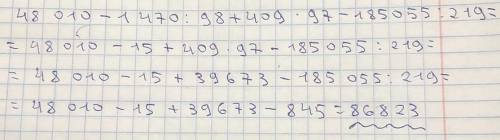 48 010 - 1 470 : 98 + 409 · 97 - 185 055 : 219 =
= 48 010 - 15 + 409 · 97 - 185 055 : 219 =
= 48 010 - 15 + 39 673 - 185 055 : 219 =
= 48 010 - 15 + 39 673 - 845 = 86 823